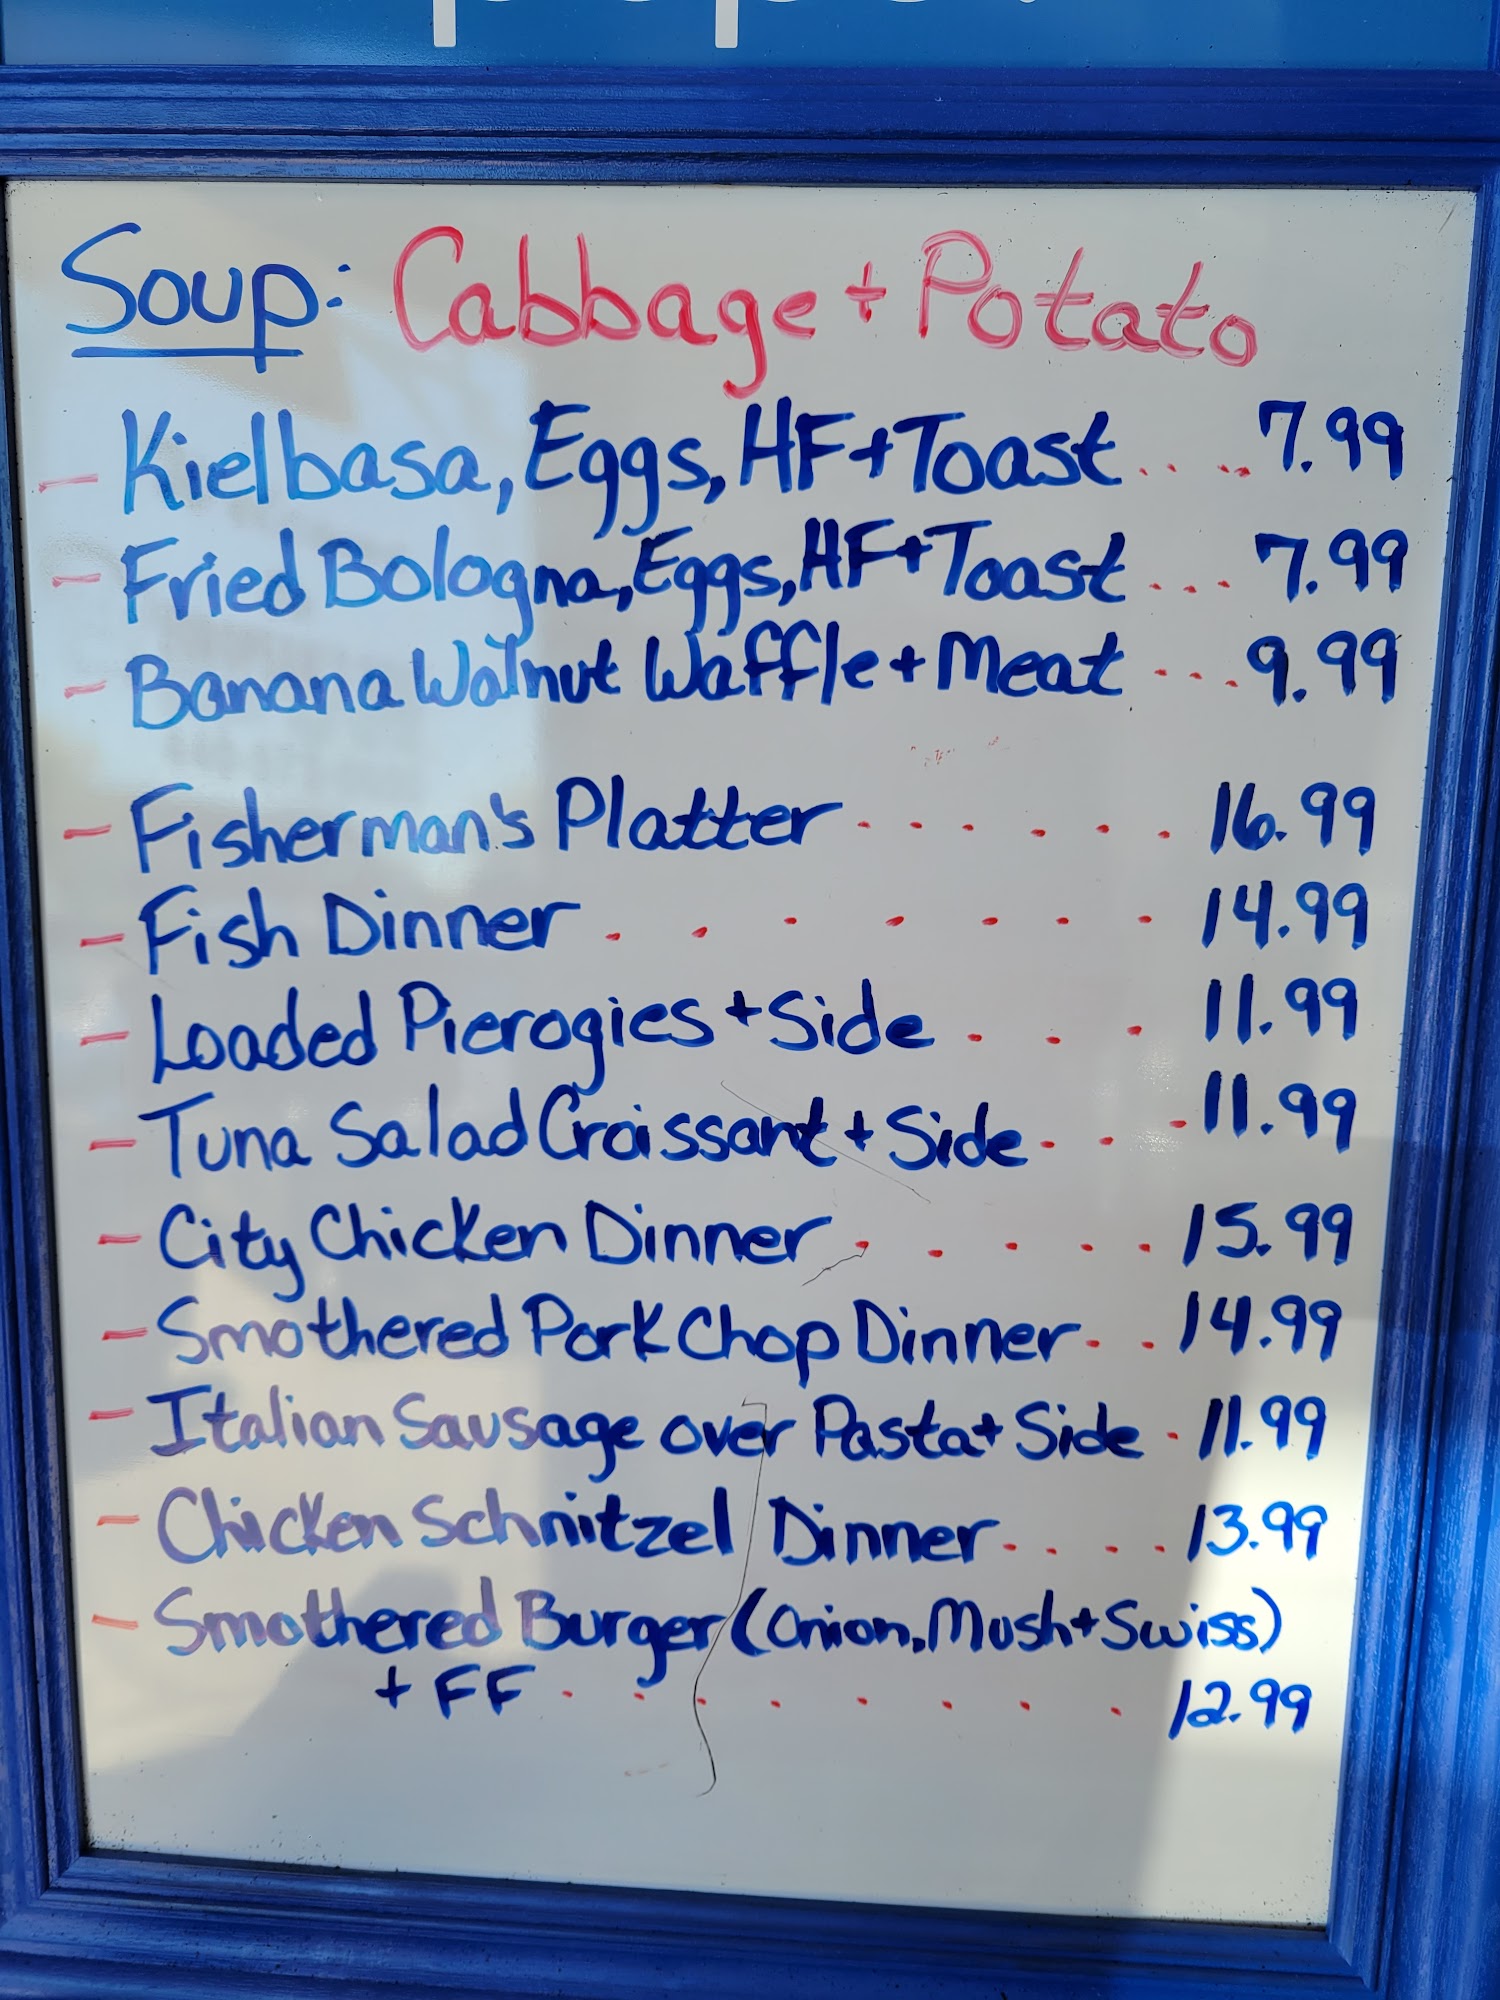 Soup: Cabbage + Potato
- Kielbasa, Eggs, HF + Toast.... 7.99
- Fried Bologna, Eggs, HF + Toast... 7.99
- Banana Walnut Waffle + Meat ... 9.99
- Fisherman's Platter...... 16.99
- Fish Dinner....... 14.99
- Loaded Pierogies + Side... 11.99
- Tuna Salad Croissant + Side... 11.99
- City Chicken Dinner..... 15.99
- Smothered Pork Chop Dinner.. 14.99
- Italian Sausage over Pasta + Side . 11.99
- Chicken Schnitzel Dinner.... 13.99
- Smothered Burger (Onion, Mush + Swiss)
+ FF........ 12.99